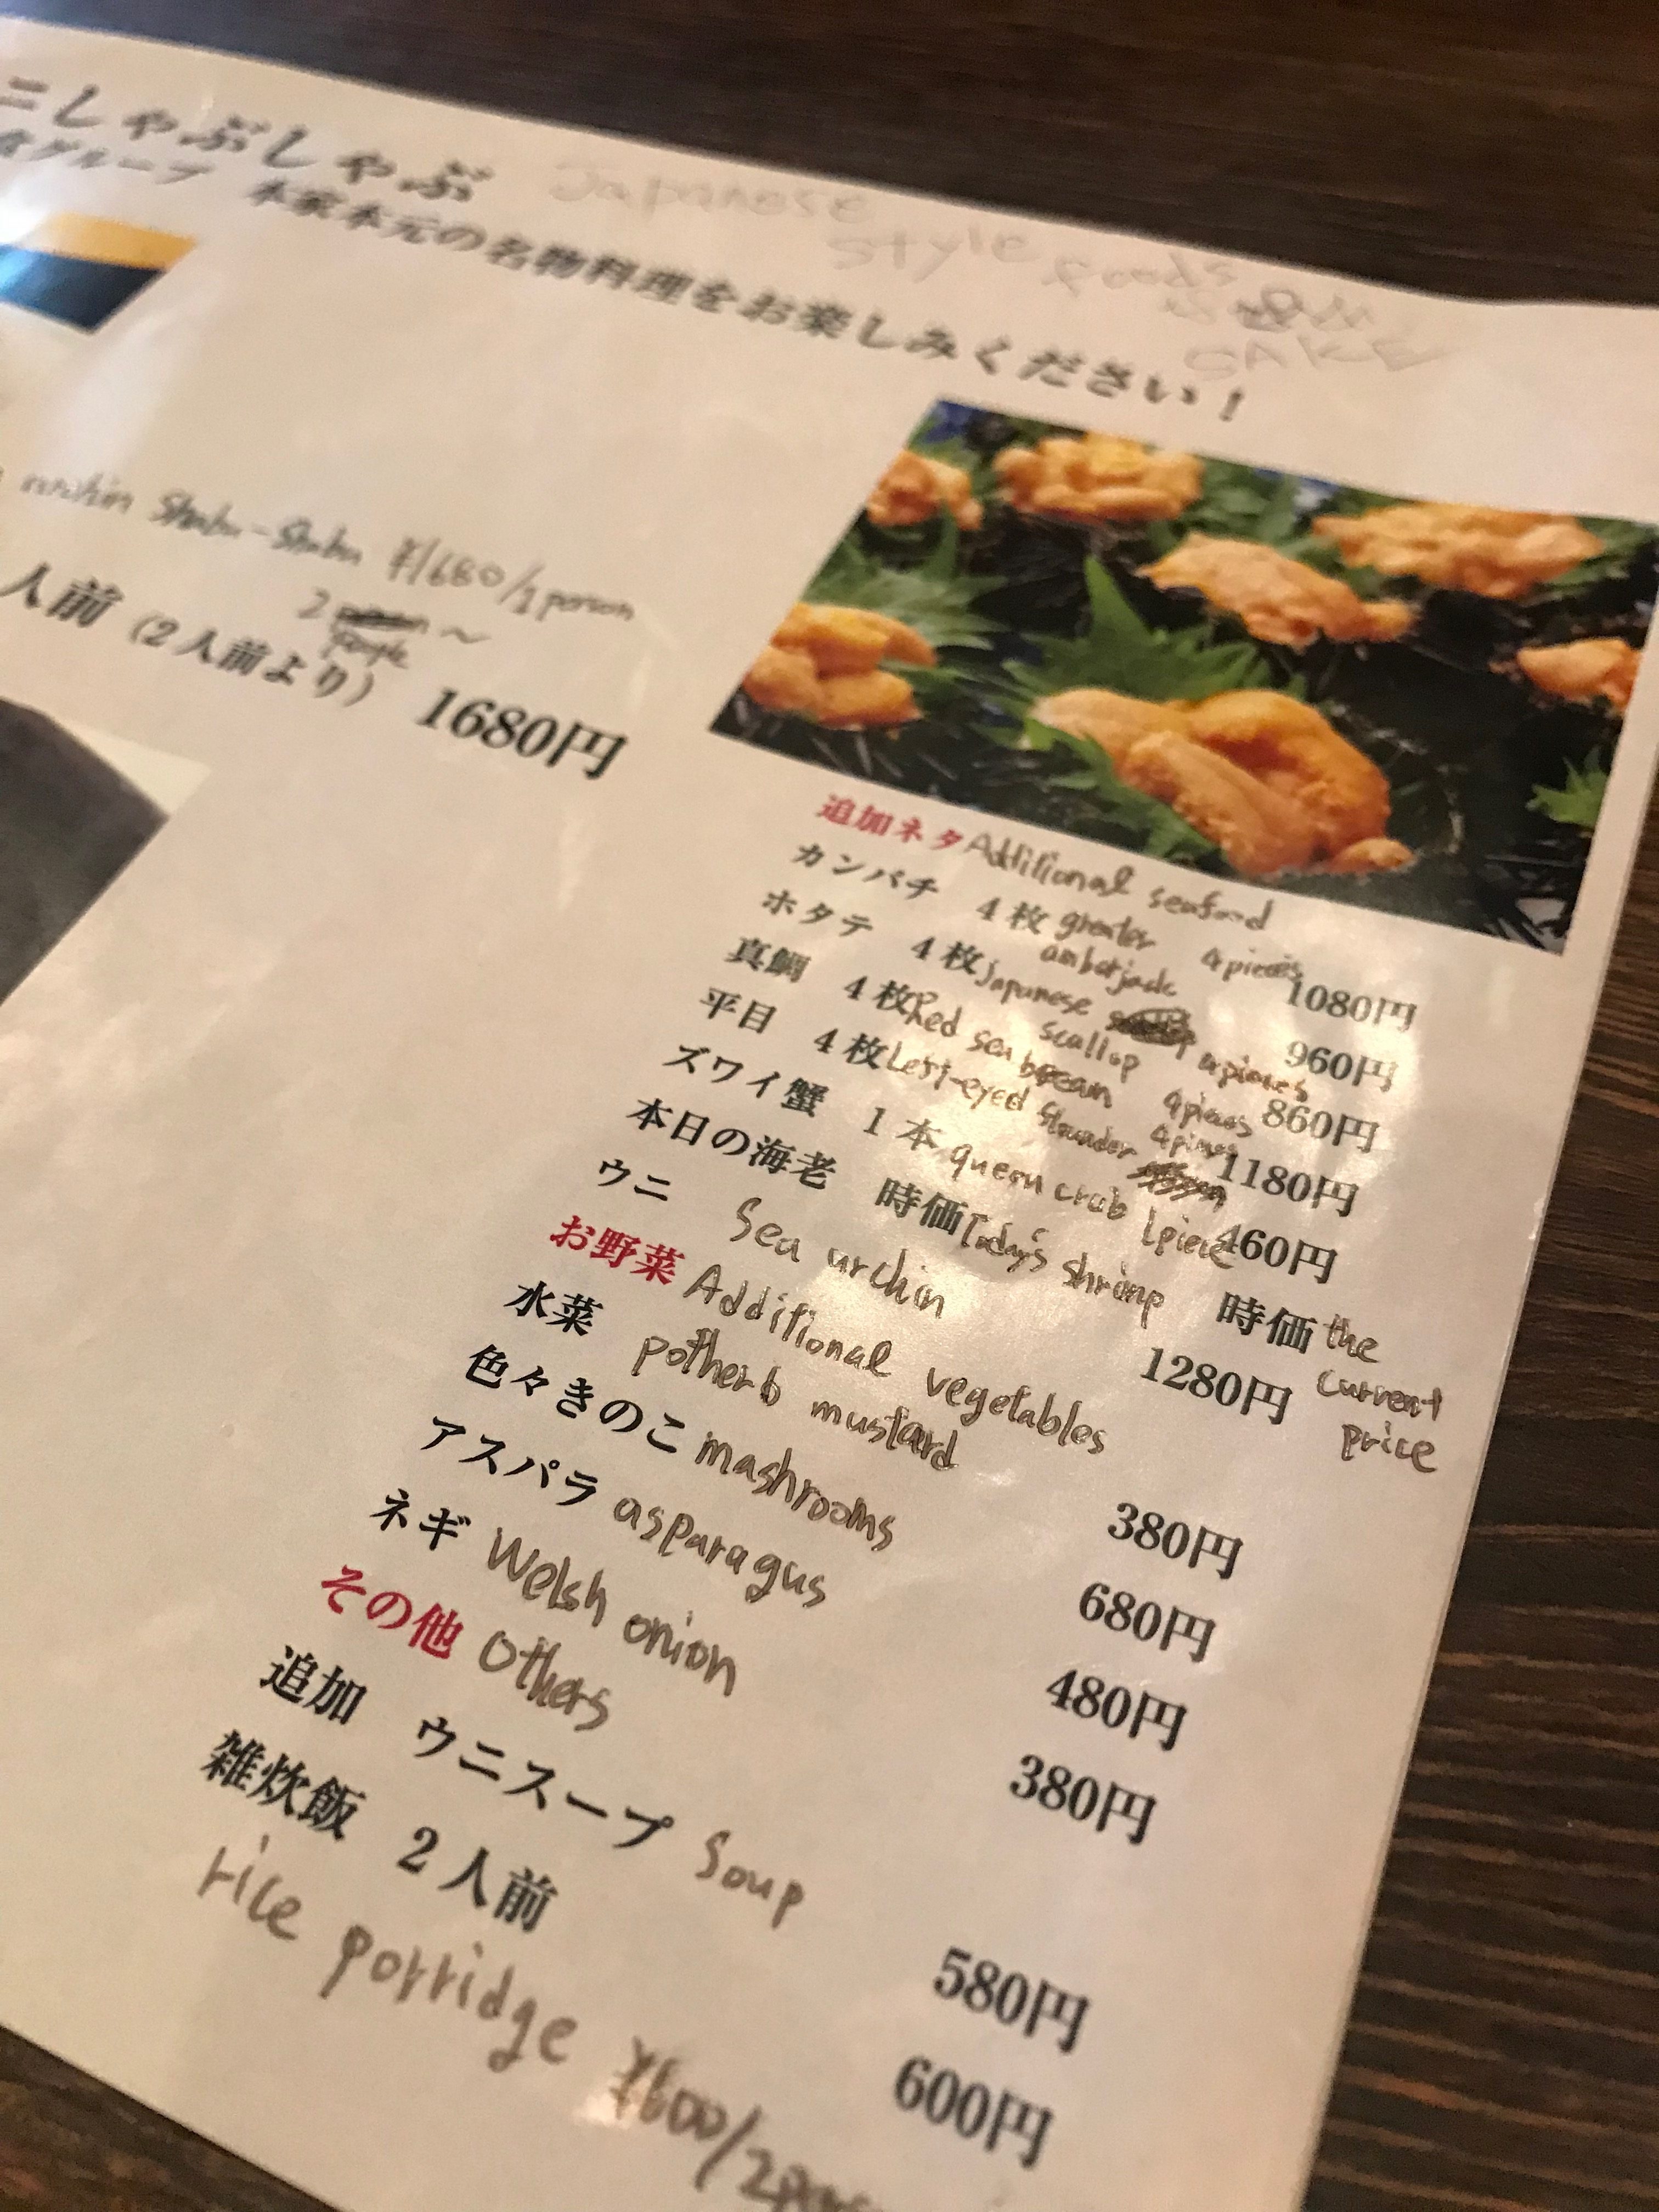 ニしゃぶしゃぶ
Japanese
style foods
SAKE
食グループ 本家本元の名物料理をお楽しみください！
urchin Shabu-Shabu ¥1680/1person
2 people ~
人前（2人前より） 1680円
追加ネタ Additional seafood
カンパチ 4枚 greater amberjack 4pieces 1080円
ホタテ 4枚 Japanese scallop 4pieces 960円
真鯛 4枚 Red sea bream 4pieces 860円
平目 4枚 Left-eyed flounder 4pieces 1180円
ズワイ蟹 1本 queen crab 1piece 460円
本日の海老 時価 Today's shrimp 時価 the current price
ウニ Sea urchin 1280円
お野菜 Additional vegetables
水菜 potherb mustard 380円
色々きのこ mashrooms 680円
アスパラ asparagus 480円
ネギ Welsh onion 380円
その他 Others
追加 ウニスープ Soup 580円
雑炊飯 2人前 600円
rice porridge ¥600/2